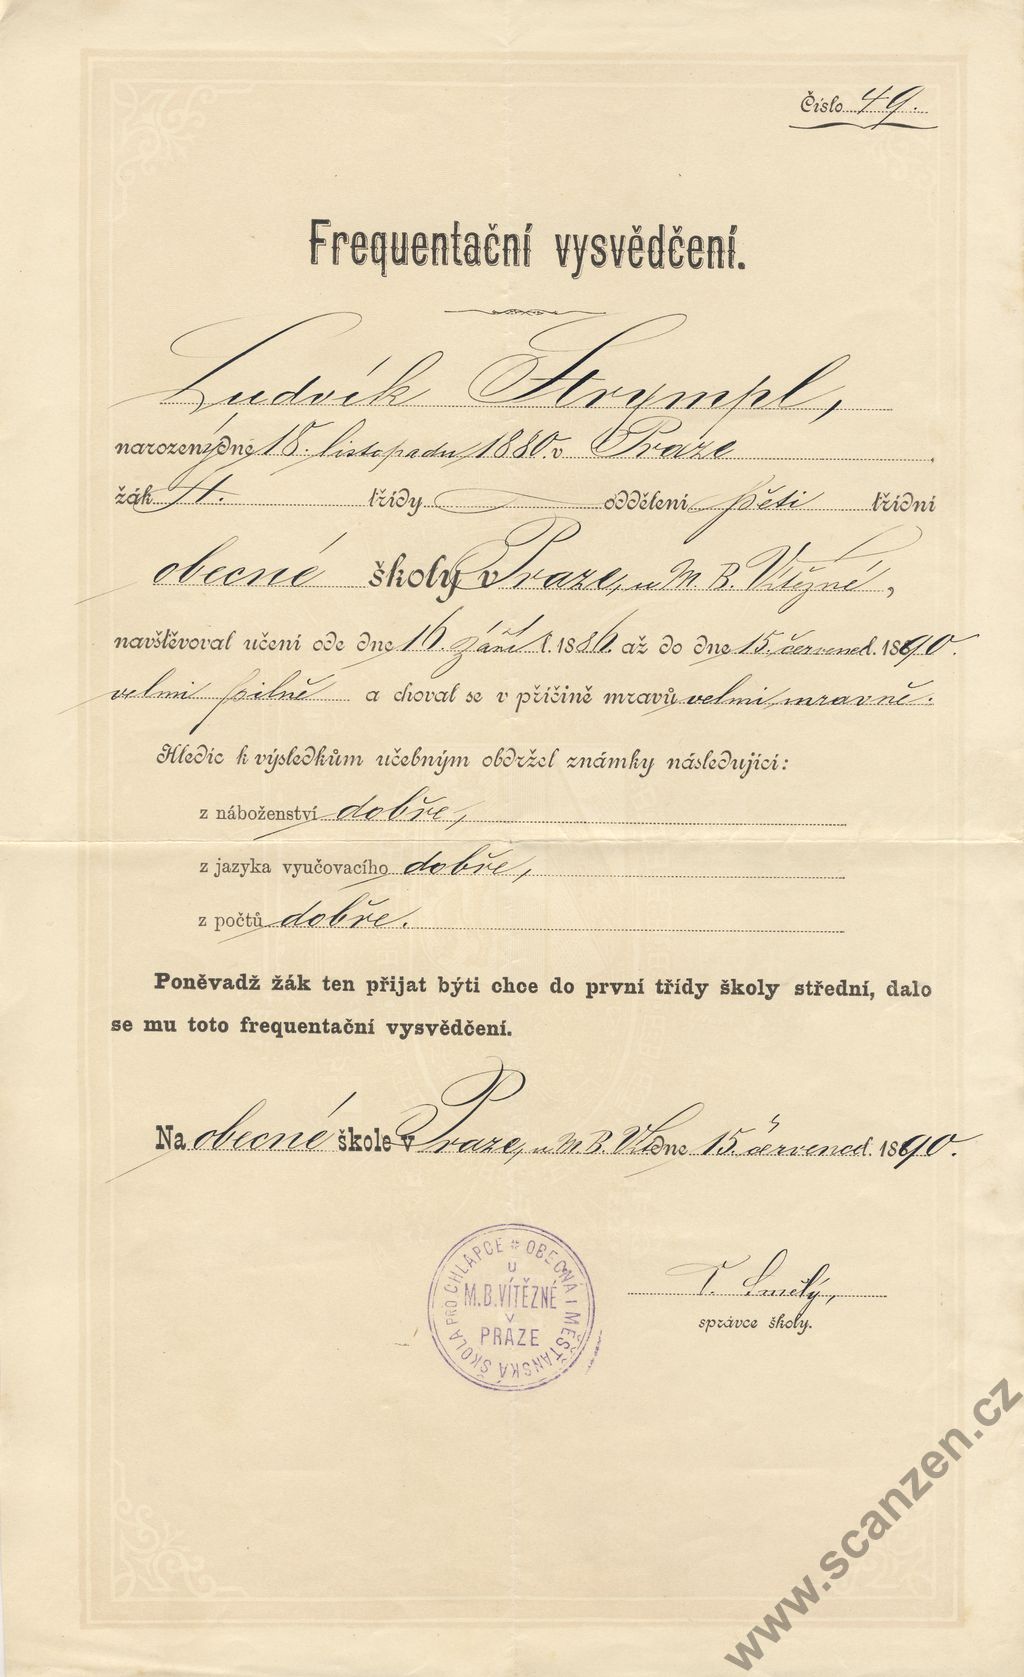 Číslo 49.
Frequentační vysvědčení.
Ludvík Strympl,
narozený dne 18. listopadu 1880. v Praze
žák 4. třídy oddělení pěti třídní
obecné školy v Praze, u M. B. Vítězné,
navštěvoval učení ode dne 16. září l. 1886. až do dne 15. července l. 1890.
velmi pilně a choval se v příčině mravů velmi mravně.
Hledíc k výsledkům učebným obdržel známky následující:
z náboženství dobře,
z jazyka vyučovacího dobře,
z počtů dobře.
Poněvadž žák ten přijat býti chce do první třídy školy střední, dalo
se mu toto frequentační vysvědčení.
Na obecné škole v Praze, u M. B. Vít. dne 15. července l. 1890.
OBECNÁ I MĚŠŤANSKÁ ŠKOLA PRO CHLAPCE
U
M. B. VÍTĚZNÉ
V
PRAZE
Smělý,
správce školy.
www.scanzen.cz